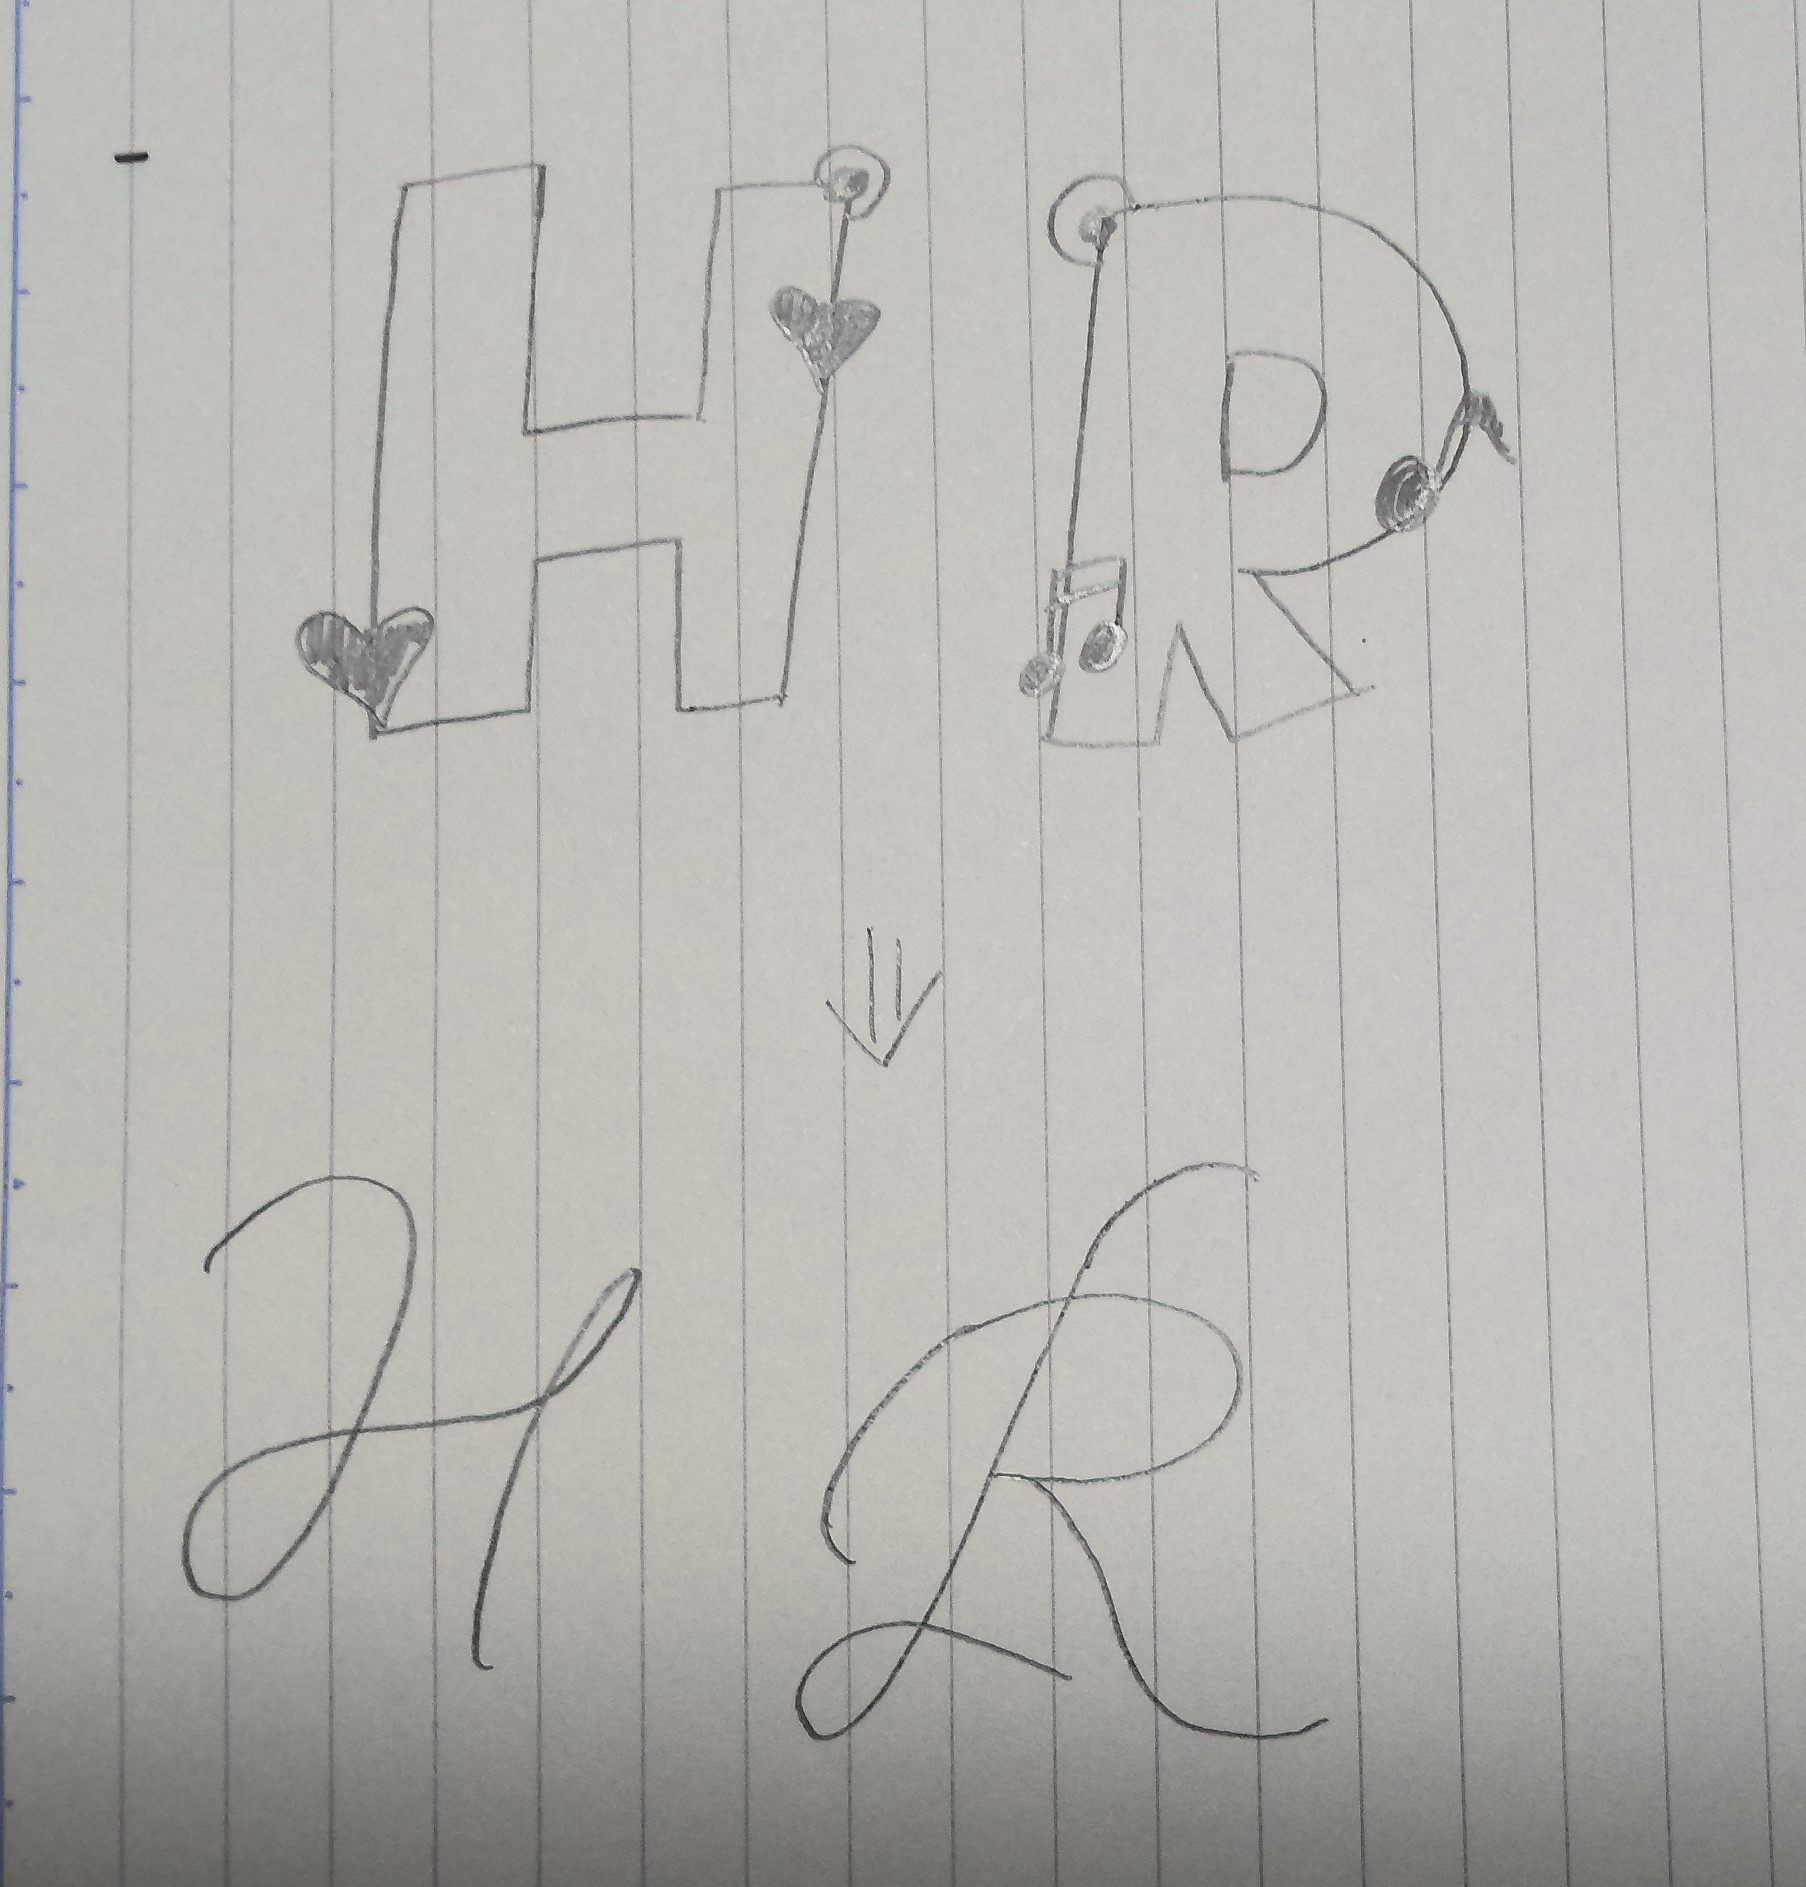 H R
H R